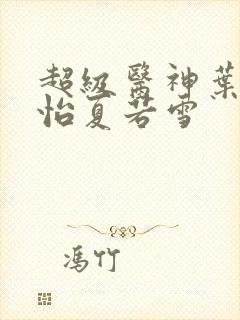 超級醫神葉
怡夏若雪
馮竹